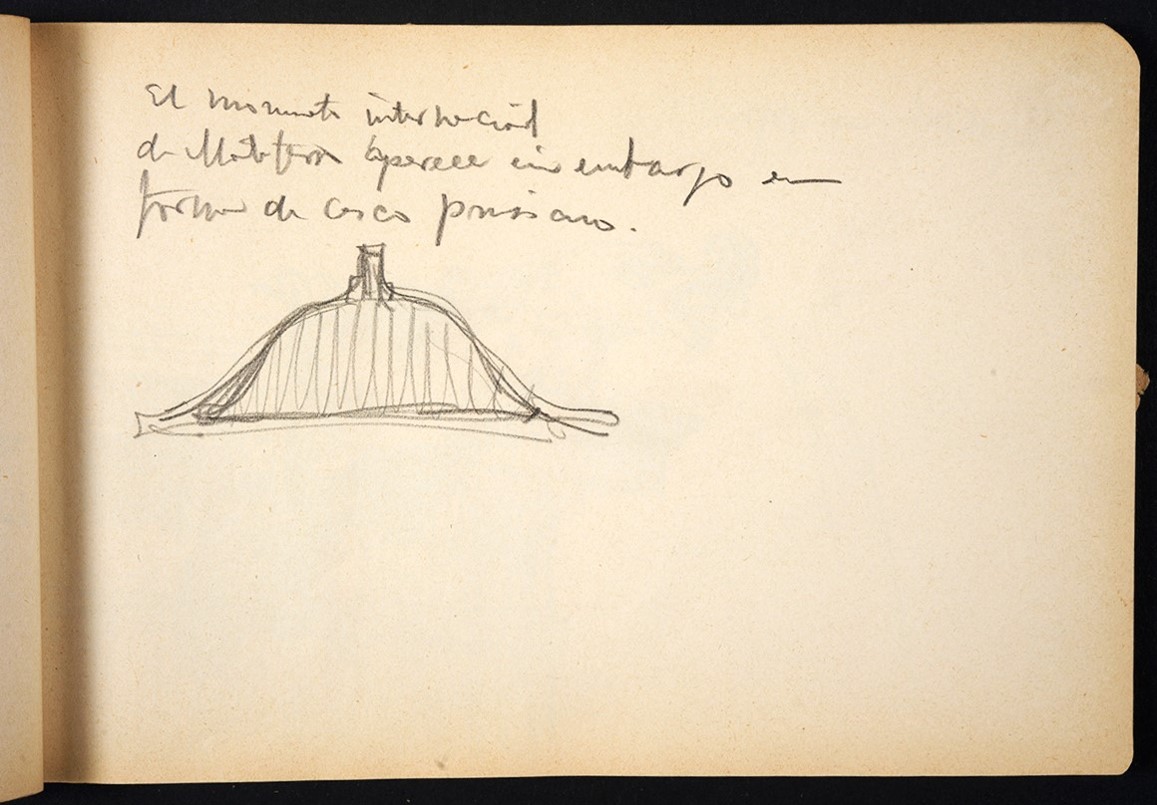 El momento internaciol
de Matafera aparece sin embargo en
forma de casco prusiano.